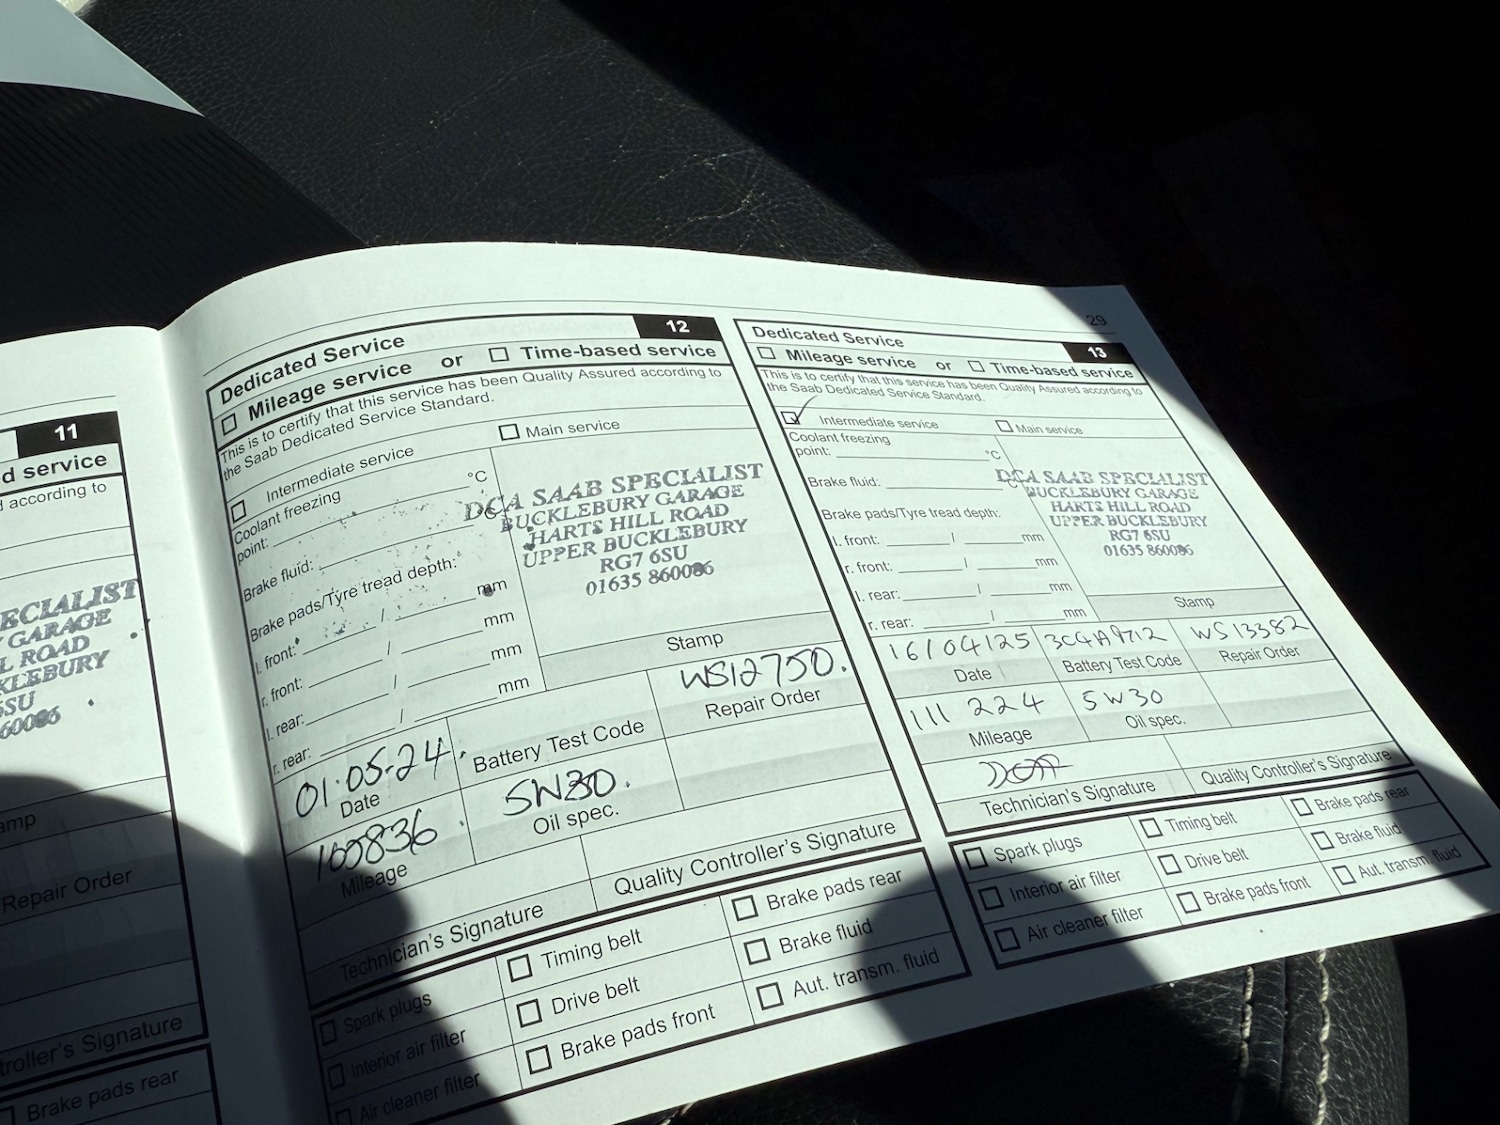 11
d service
d according to
ECIALIST
GARAGE
L ROAD
KLEBURY
6SU
60086
amp
Repair Order
troller's Signature
Brake pads rear
12
Dedicated Service
Mileage service or Time-based service
This is to certify that this service has been Quality Assured according to
the Saab Dedicated Service Standard.
Intermediate service Main service
Coolant freezing
point: °C
Brake fluid: °C
Brake pads/Tyre tread depth:
l. front: / mm
r. front: / mm
l. rear: / mm
r. rear: / mm
DCA SAAB SPECIALIST
BUCKLEBURY GARAGE
HARTS HILL ROAD
UPPER BUCKLEBURY
RG7 6SU
01635 860086
Stamp
01.05.24. WS12750.
Date Battery Test Code Repair Order
5W30.
Mileage Oil spec.
Technician's Signature Quality Controller's Signature
Spark plugs Timing belt Brake pads rear
Interior air filter Drive belt Brake fluid
Air cleaner filter Brake pads front Aut. transm. fluid
29
13
Dedicated Service
Mileage service or Time-based service
This is to certify that this service has been Quality Assured according to
the Saab Dedicated Service Standard.
Intermediate service Main service
Coolant freezing
point: °C
Brake fluid: °C
Brake pads/Tyre tread depth:
l. front: / mm
r. front: / mm
l. rear: / mm
r. rear: / mm
DCA SAAB SPECIALIST
BUCKLEBURY GARAGE
HARTS HILL ROAD
UPPER BUCKLEBURY
RG7 6SU
01635 860086
Stamp
16/04/25 3C4A9712 WS13382
Date Battery Test Code Repair Order
111 224 5W30
Mileage Oil spec.
Technician's Signature Quality Controller's Signature
Spark plugs Timing belt Brake pads rear
Interior air filter Drive belt Brake fluid
Air cleaner filter Brake pads front Aut. transm. fluid